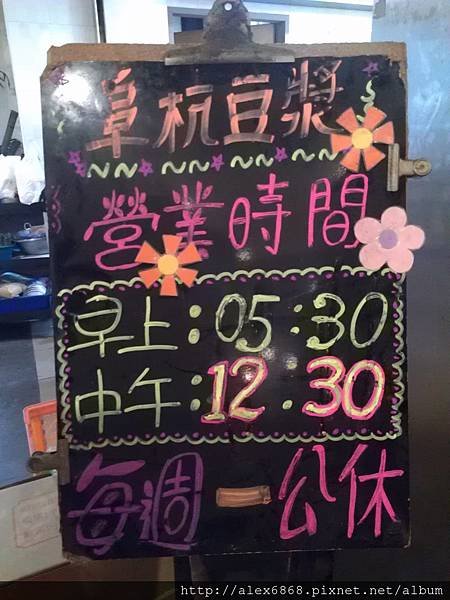 阜杭豆漿
營業時間
早上:05:30
中午:12.30
每週一公休
http://alex6868.pixnet.net/album